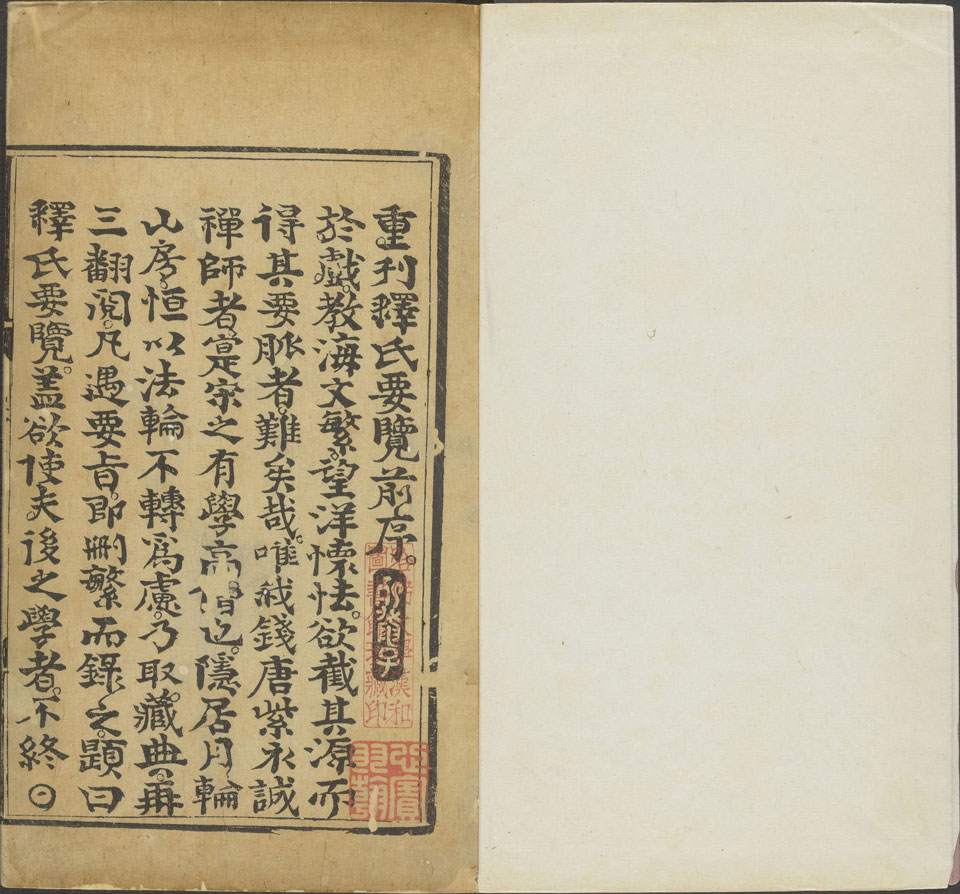 重刋釋氏要覽前序。
於戲。教海文繁。望洋懷怯。欲截其源而
得其要脉者。難矣哉。唯我錢唐紫永誠
禪師者。寔宗之有學高僧也。隱居月輪
山房。恒以法輪不轉爲慮。乃取藏典。再
三翻閱。凡遇要旨。即刪繁而錄之。題曰
釋氏要覽。盖欲使夫後之學者。不終⊙